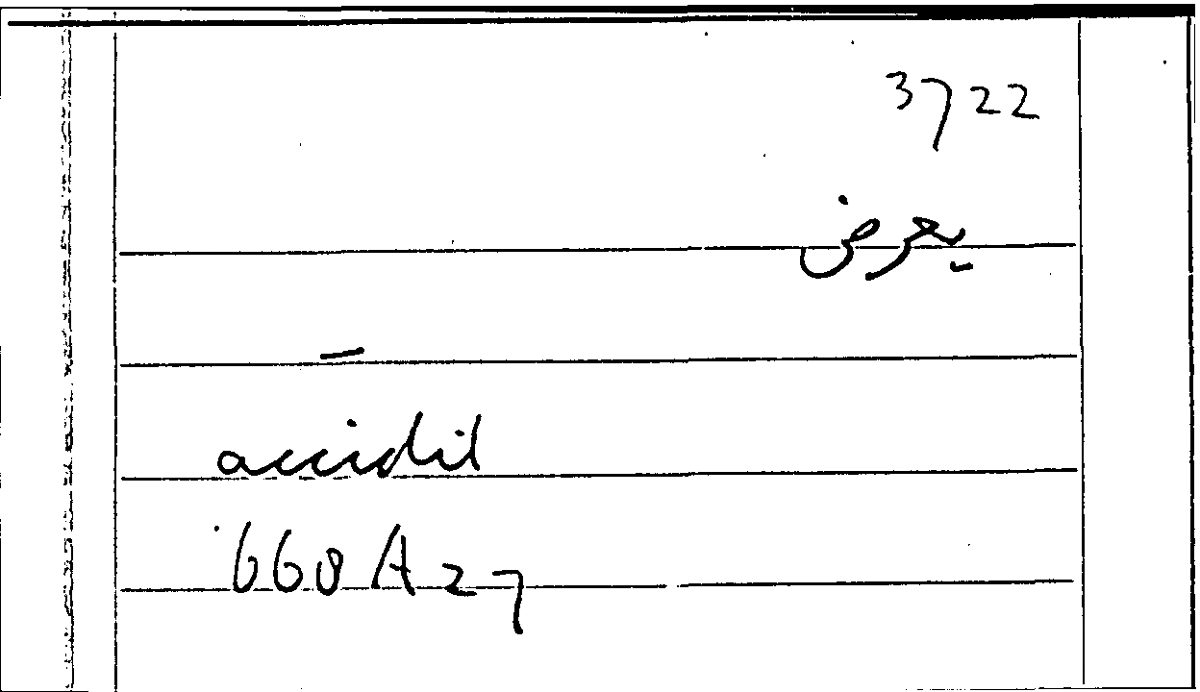 3722
يعرض
accidit
668A27